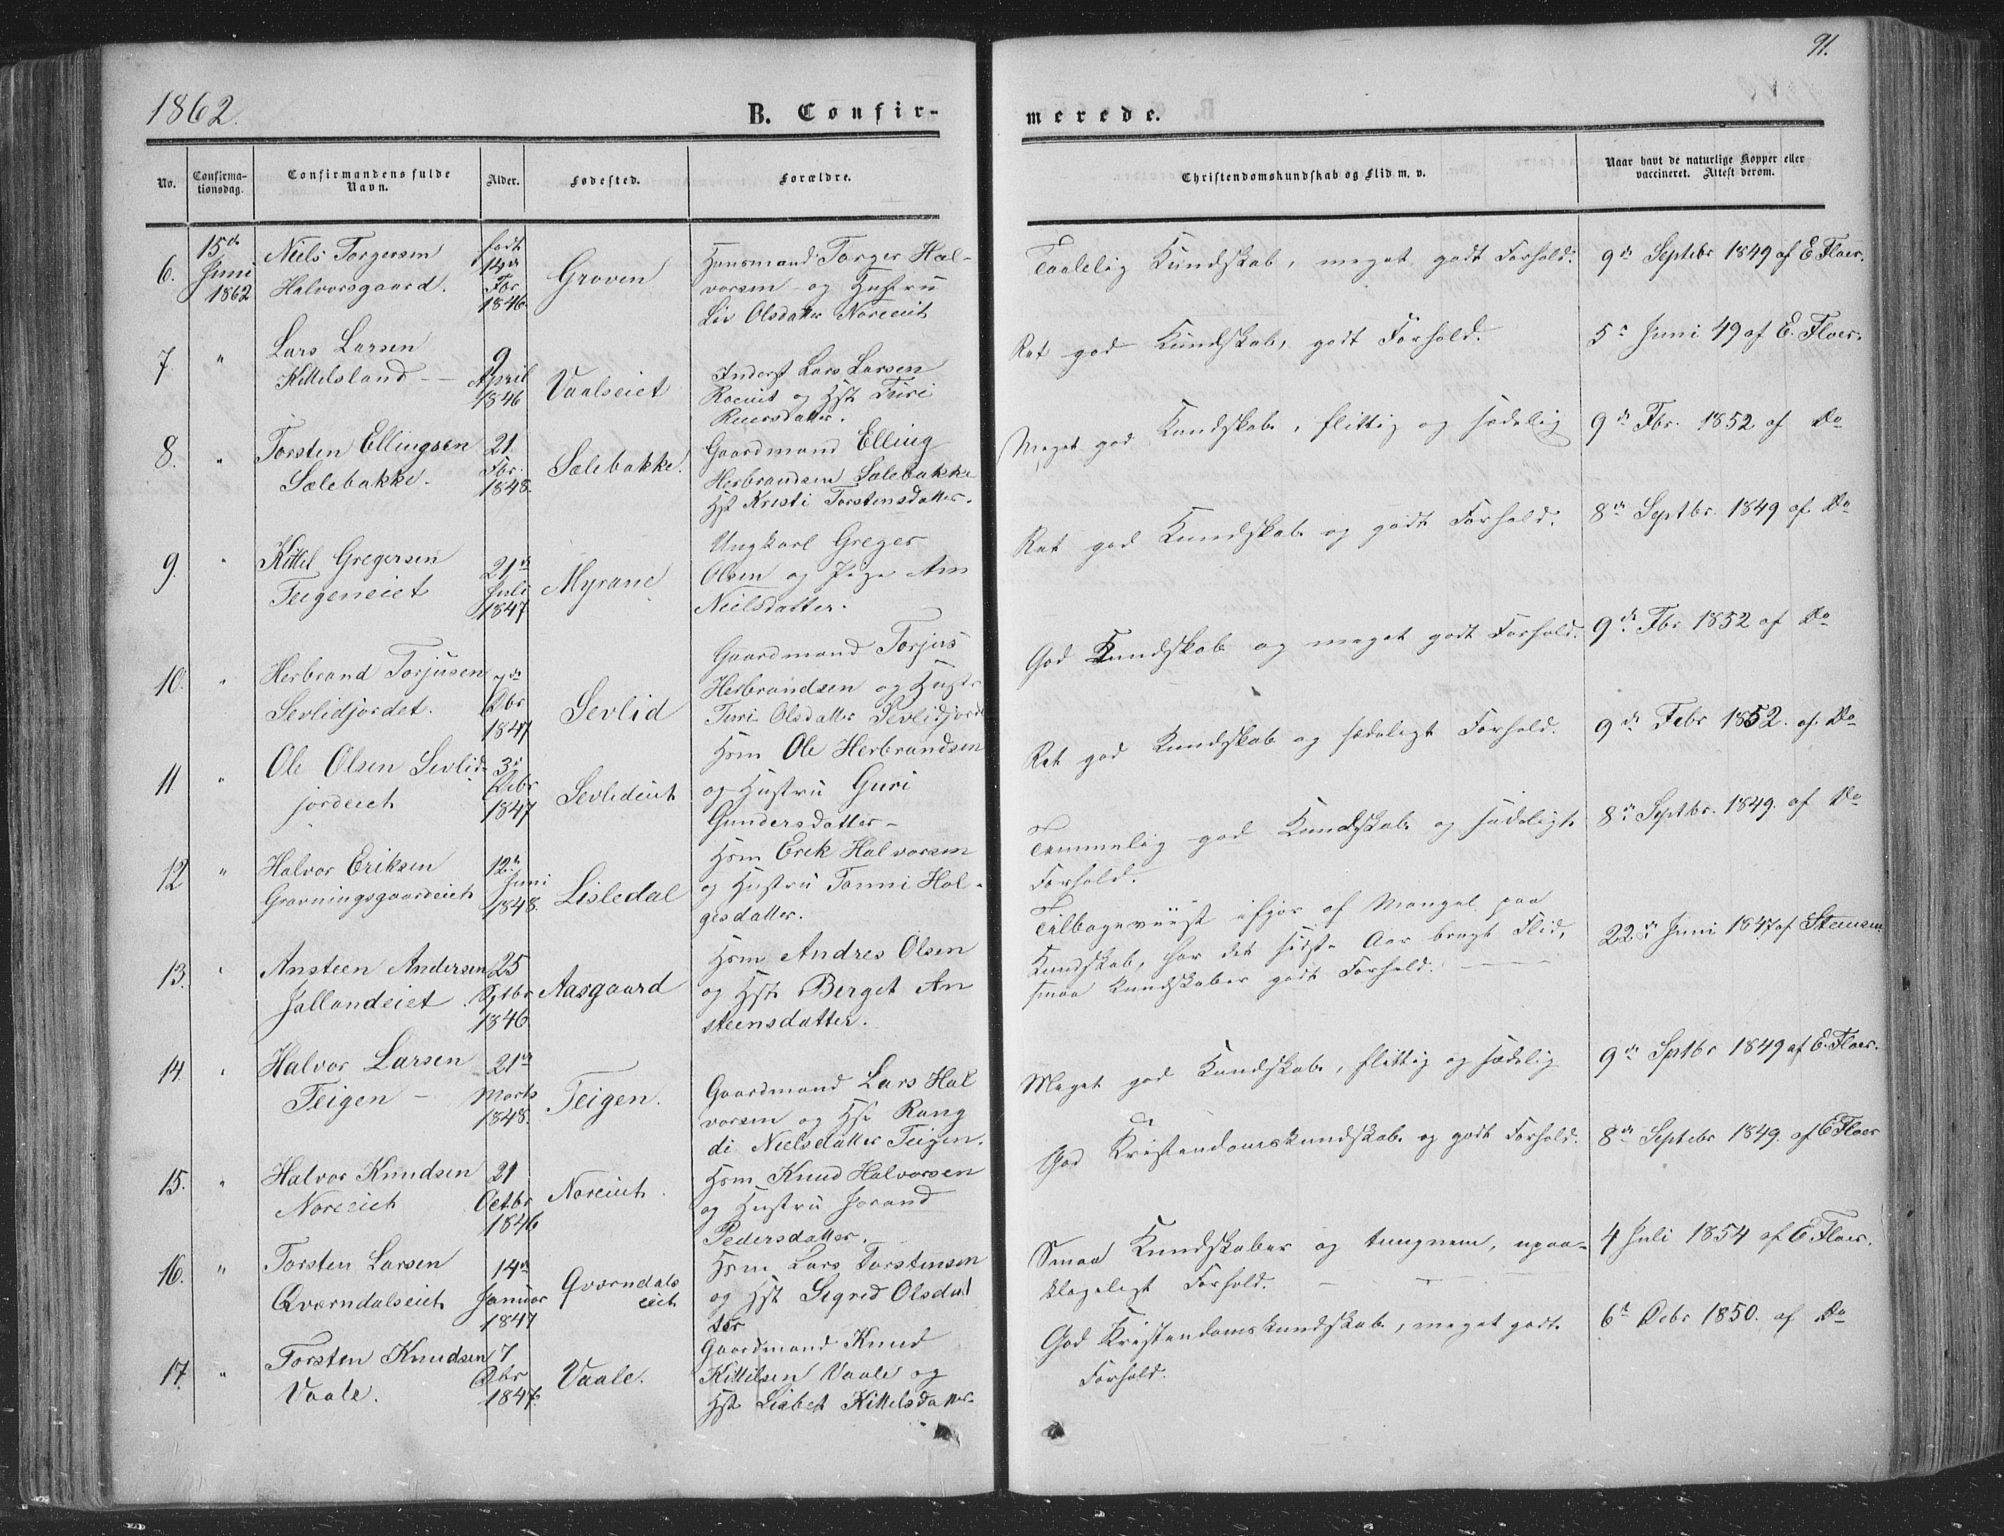 91.
1862.
B. Confir-
merede.
No.
Confirma-
tionsdag.
Confirmandens fulde
Navn.
Alder.
Fødested.
Forældre.
Christendomskundskab og Flid m. v.
Naar havt de naturlige Kopper eller
vaccineret. Attest derom.
6.
15de
Juni
1862
Niels Torgersen
Halvorsgaard.
født
14de
Fbr
1846.
Groven
Huusmand Torger Hal-
vorsen og Hustru
Liv Olsdatter Noreeiet
Taalelig Kundskab, meget godt Forhold.
9de Septebr 1849 af E. Floer.
7
"
Lars Larsen
Kittelsland
9
April
1846
Vaalseiet
Inderst Lars Larsen
og Hst Turi
Reiersdatter.
Ret god Kundskab, godt Forhold.
5te Juni 49 af E. Floer.
8.
"
Torsten Ellingsen
Sælebakke.
21
Fbr.
1848.
Sælebakke.
Gaardmand Elling
Herbrandsen Sælebakke
Hst Kristi Torstensdatter.
Meget god Kundskab, flittig og sædelig
9de Fbr. 1852 af Do
9.
"
Kittil Gregersen
Teigeneiet
21de
Juli
1847
Myrane
Ungkarl Greger
Olsen og Pige An
Nielsdatter.
Ret god Kundskab og godt Forhold.
8de Septbr. 1849 af Do
10.
"
Herbrand Torjusen
Sevlidjordet.
Dbr
1847
Sevlid
Gaardmand Torjus
Herbrandsen og Hustr
Turi Olsdatter Sevlidjorde
God Kundskab og meget godt Forhold.
9de Fbr 1852 af Do
11
"
Ole Olsen Sevlid-
jordeiet
3de
Debr
1847
Sevlideiet
Hsm Ole Herbrandsen
og Hustru Guri
Gundersdatter-
Ret god Kundskab og sædeligt Forhold.
9de Febr 1852. af Do
12
"
Halvor Eriksen
Gravningsgaardeiet
12te
Juni
1848.
Lisledal
Hsm Erik Halvorsen
og Hustru Tonni Hel-
gesdatter.
Temmelig god Kundskab og sædeligt
Forhold.
8de Septbr. 1849. af Do
13.
"
Ansteen Andersen
Jallandeiet
25
Sptbr
1846
Aasgaard
Hsm Andres Olsen
og Hst Berget An
steensdatter.
Tilbageviist ifjor af Mangel paa
Kundskab, har det sidste Aar brugt Flid,
smaa Kundskaber godt Forhold.
22de Juni 1847 af Stensen
14.
"
Halvor Larsen
Teigen
21de
Marts
1848.
Teigen.
Gaardmand Lars Hal
vorsen og Hst Rang
di Nielsdatter Teigen.
Meget god Kundskab, flittig og sædelig
9de Sptbr 1849 af E. Floer.
15.
"
Halvor Knudsen
Noreeiet
21
Octbr
1846
Noreiet.
Hsm Knud Halvorsen
og Hustru Jorand
Pedersdatter.
God Kristendomskundskab og godt Forhold.
8de Septebr 1849. af E Floer
16.
"
Torsten Larsen
Qværndalseiet
14de
Januar
1847
Qværndals
eiet
Hsm Lars Torstensen
og Hst Sigrid Olsdat
ter
Smaa Kundskaber og tungnem, upaa-
klageligt Forhold.
4 Juli 1854 af E Floer.
17.
"
Torsten Knudsen
Vaale.
7
Dbr
1847.
Vaale.
Gaardmand Knud
Kittilsen Vaale og
Hst Liabet Kittelsdatter.
God Kristendomskundskab, meget godt
Forhold.
6te Debr 1850. af Do